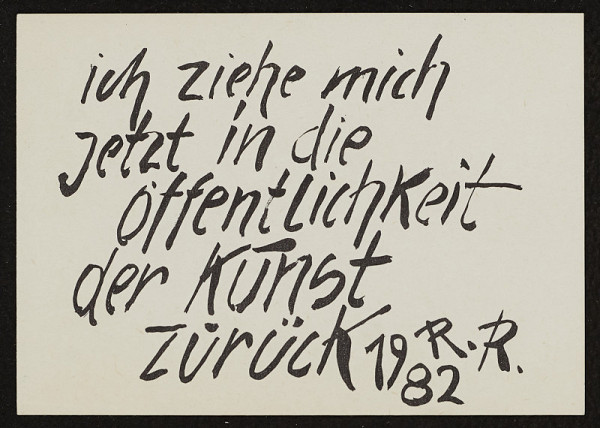 ich ziehe mich
jetzt in die
öffentlichkeit
der Kunst
zurück 1982 R.R.